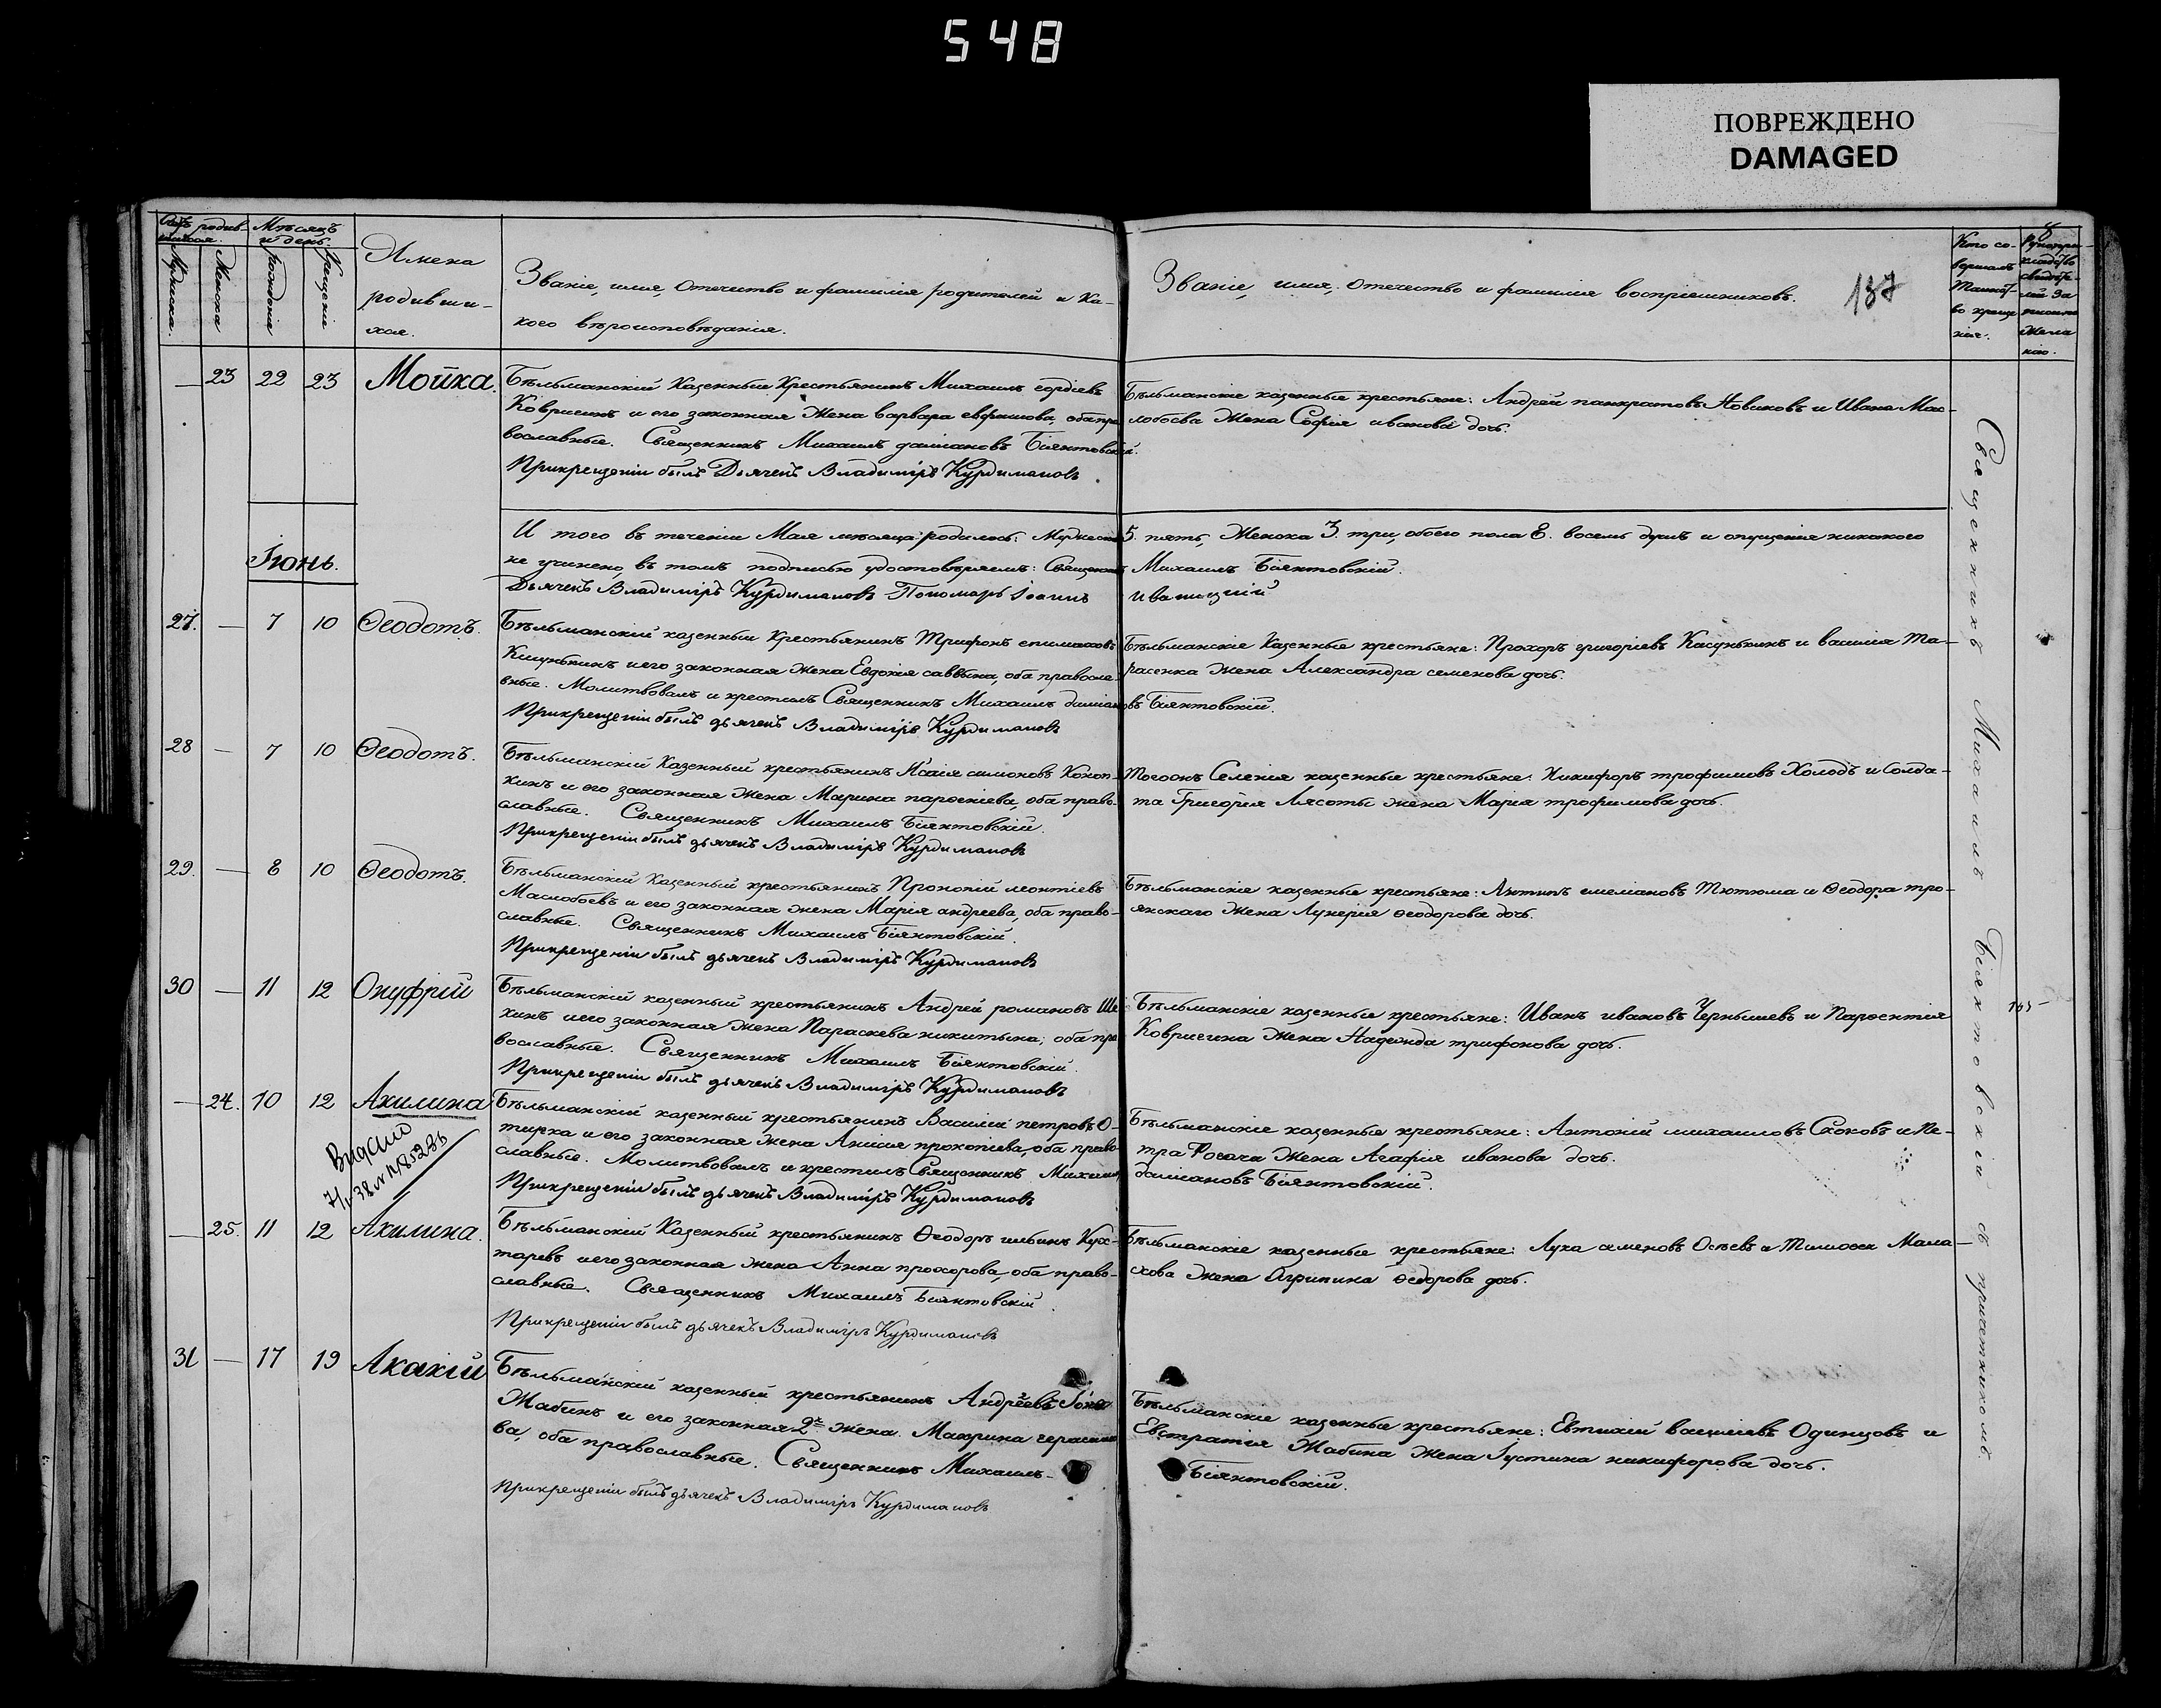 548
ПОВРЕЖДЕНО
DAMAGED
родив-
Мужеска.
Женска
Мѣсяцъ
и день.
рожденія
Крещенія
Имена
родивши-
хся.
Званіе, имя, Отечество и фамилія родителей и Ка-
кого вѣроисповѣданія.
Званіе, имя, Отечество и фамилія Воспріемниковъ.
137
Кто со-
вершалъ
Таинст-
во креще
нія.
8
Рукопри-
кладство
свидѣте-
лей За
писки по
Жела
нію.
— 23 22 23 Мойха.
Бѣльманскій Казенный Крестьянинъ Михаилъ гордіевъ
Ковригинъ и его законная Жена варвара евфимова, оба пра
вославные. Священникъ Михаилъ даміановъ Біянтовскій.
При крещеніи былъ Дьячекъ Владиміръ Курдимановъ
Бѣльманскіе казенные крестьяне: Андрей панкратовъ Новиковъ и Ивана Мас-
лобоева Жена Софія иванова дочь.
И того въ теченіи Мая мѣсяца родилось: Мужеска 5. пять, Женска 3. три, обоего пола 8. восемь душъ и опущенія никакого
не учинено, въ томъ подписью удостовѣряемъ: Священникъ Михаилъ Біянтовскій.
Дьячекъ Владиміръ Курдимановъ Пономарь Іоаннъ Иваницкій
Іюнь.
27. — 7 10 Ѳеодотъ.
Бѣльманскій казенный Крестьянинъ Трифонъ епимаховъ
и его законная Жена Евдокія саввина, оба правосла-
вные. Молитвовалъ и крестилъ Священникъ Михаилъ даміановъ Біянтовскій.
При крещеніи былъ дьячекъ Владиміръ Курдимановъ
Бѣльманскіе Казенные крестьяне: Прохоръ григоріевъ Касунькинъ и василія Та-
расенка Жена Александра семенова дочь.
28 — 7 10 Ѳеодотъ.
Бѣльманскій Казенный крестьянинъ Исаія симоновъ Коноп-
кинъ и его законная Жена Марина парѳеніева, оба право-
славные. Священникъ Михаилъ Біянтовскій.
При крещеніи былъ дьячекъ Владиміръ Курдимановъ
Тогожъ Селенія казенные крестьяне: Никифоръ трофимовъ Холодъ и Солда-
та Григорія Лясоты жена Марія трофимова дочь.
29. — 8 10 Ѳеодотъ.
Бѣльманскій Казенный крестьянинъ Прокопій леонтіевъ
Маслобоевъ и его законная жена Марія андреева, оба право-
славные. Священникъ Михаилъ Біянтовскій.
При крещеніи былъ дьячекъ Владиміръ Курдимановъ
Бѣльманскіе казенные крестьяне: Антипъ емеліановъ Тютюма и Ѳеодора тро-
янскаго Жена Лукерія ѳеодорова дочь.
30 — 11 12 Онуфрій
Бѣльманскій казенный крестьянинъ Андрей романовъ Ше
хинъ и его законная Жена Параскева никитина, оба пра
вославные. Священникъ Михаилъ Біянтовскій.
При крещеніи былъ дьячекъ Владиміръ Курдимановъ
Бѣльманскіе казенные крестьяне: Иванъ ивановъ Чернышевъ и Парѳентія
Ковригина Жена Надежда трифонова дочь.
165
— 24. 10 12 Акилина
Бѣльманскій казенный крестьянинъ Василій петровъ О-
и его законная Жена Анисія прокопіева, оба право
славные. Молитвовалъ и крестилъ Священникъ Михаилъ даміановъ Біянтовскій.
При крещеніи былъ дьячекъ Владиміръ Курдимановъ
Бѣльманскіе казенные крестьяне: Антоній михаиловъ Скоковъ и Пе-
тра Рогача Жена Агафія иванова дочь.
Видано
— 25. 11 12 Акилина.
Бѣльманскій Казенный крестьянинъ Ѳеодоръ ильинъ Кух-
таревъ и его законная жена Анна прохорова, оба право-
славные. Священникъ Михаилъ Біянтовскій.
При крещеніи былъ дьячекъ Владиміръ Курдимановъ
Бѣльманскіе казенные крестьяне: Лука семеновъ Осѣевъ и Тимоѳея Мала-
хова Жена Агрипина ѳедорова дочь.
31 — 17 19 Акакій
Бѣльманскій казенный крестьянинъ Андреевъ Іона
Жабинъ и его законная 2я жена Макрина герасимо
ва, оба православные. Священникъ Михаилъ Біянтовскій.
При крещеніи былъ дьячекъ Владиміръ Курдимановъ
Бѣльманскіе казенные крестьяне: Евтихій василіевъ Одинцовъ и
Евстратія Жабина Жена Іустина никифорова дочь.
Священникъ Михаилъ Біянтовскій съ причетникомъ.